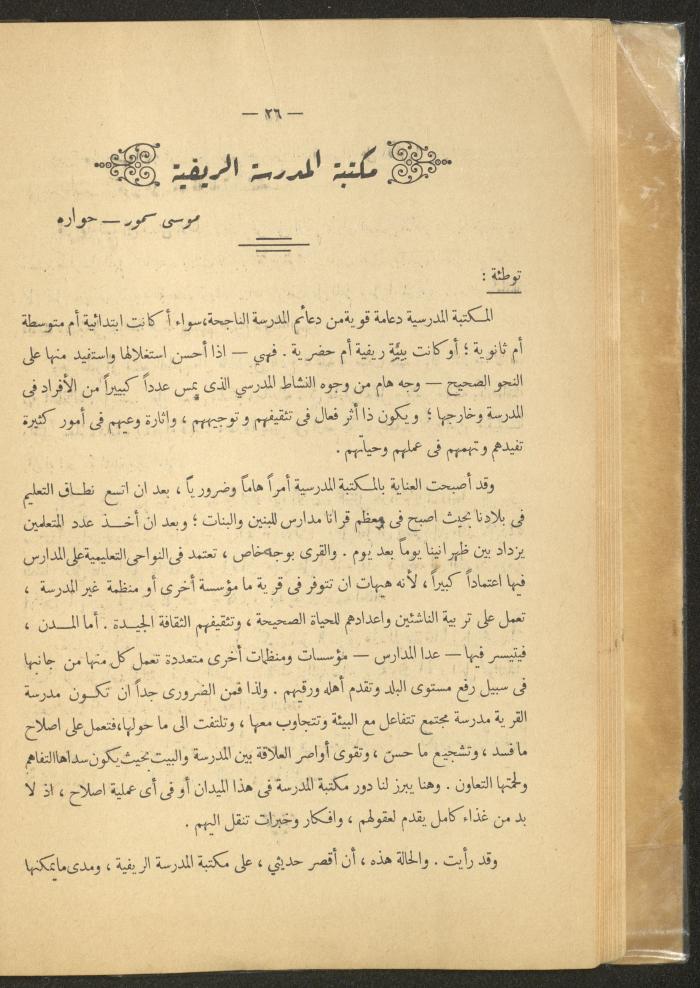 — ٢٦ —
مكتبة المدرسة الريفية
موسى سمور — حواره
توطئة :
المكتبة المدرسية دعامة قوية من دعائم المدرسة الناجحة، سواء أكانت ابتدائية أم متوسطة
أم ثانوية ؛ أو كانت بيئة ريفية أم حضرية . فهي — اذا أحسن استغلالها واستفيد منها على
النحو الصحيح — وجه هام من وجوه النشاط المدرسي الذى يمس عدداً كبيراً من الأفراد فى
المدرسة وخارجها ؛ ويكون ذا أثر فعال فى تثقيفهم وتوجيههم ، واثارة وعيهم فى أمور كثيرة
تفيدهم وتهمهم فى عملهم وحياتهم .
وقد أصبحت العناية بالمكتبة المدرسية أمراً هاماً وضرورياً ، بعد ان اتسع نطاق التعليم
فى بلادنا بحيث اصبح فى معظم قرانا مدارس للبنين والبنات ؛ وبعد ان أخذ عدد المتعلمين
يزداد بين ظهرانينا يوماً بعد يوم . والقرى بوجه خاص ، تعتمد فى النواحى التعليمية على المدارس
فيها اعتماداً كبيراً ، لأنه هيهات ان تتوفر فى قرية ما مؤسسة أخرى أو منظمة غير المدرسة ،
تعمل على تربية الناشئين واعدادهم للحياة الصحيحة ، وتثقيفهم الثقافة الجيدة . أما المدن ،
فيتيسر فيها — عدا المدارس — مؤسسات ومنظمات أخرى متعددة تعمل كل منها من جانبها
فى سبيل رفع مستوى البلد وتقدم أهله ورقيهم . ولذا فمن الضرورى جداً ان تكون مدرسة
القرية مدرسة مجتمع تتفاعل مع البيئة وتتجاوب معها ، وتلتفت الى ما حولها، فتعمل على اصلاح
ما فسد ، وتشجيع ما حسن ، وتقوى أواصر العلاقة بين المدرسة والبيت بحيث يكون سداها التفاهم
ولحمتها التعاون . وهنا يبرز لنا دور مكتبة المدرسة فى هذا الميدان أو فى أى عملية اصلاح ، اذ لا
بد من غذاء كامل يقدم لعقولهم ، وافكار وخبرات تنقل اليهم .
وقد رأيت . والحالة هذه ، أن أقصر حديثي ، على مكتبة المدرسة الريفية ، ومدى ما يمكنها